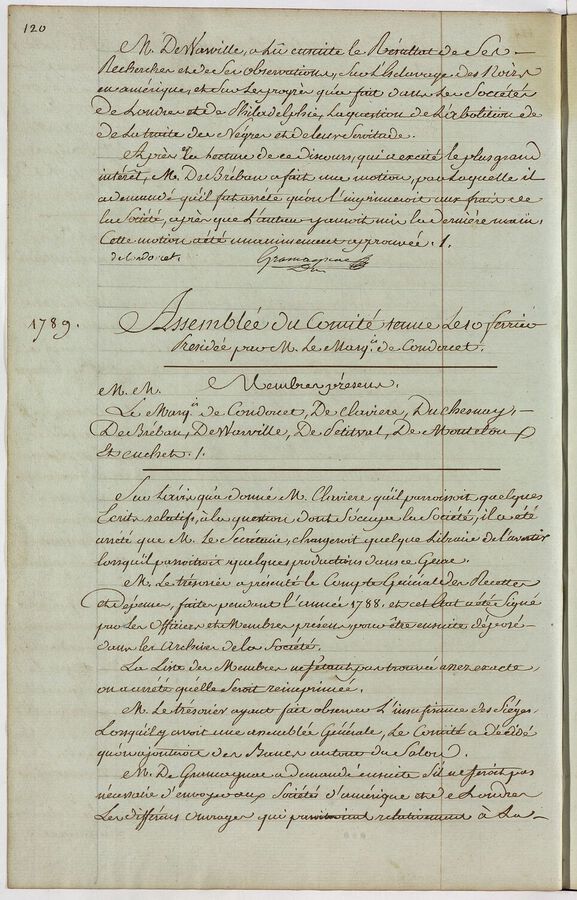 120
M. De Warville, a lû ensuite le Résultat de Ses
Recherches et de Ses observations, Sur l'Esclavage des Noirs
en amérique, et Sur les progrès qu'a fait dans les Sociétés
de Londres et de Philadelphie, la question de l'abolition de
de la traite des Négres et de leur Servitude.
Après la lecture de ce discours, qui a excité le plus grand
intérêt, M. De Bréban a fait une motion, par laquelle il
a demandé qu'il fut arrêté qu'on l'imprimeroit aux frais de
la Société, après que l'auteur y auroit mis la dernière main.
Cette motion a été unanimement approuvée. /.
de Condorcet. Gramagnac
1789. Assemblée du Comité tenue Le 10 fevrier
Présidée par M. Le Marq.is de Condorcet.
M. M. Membres présens.
Le Marq.is de Condorcet, De Claviere, Du Chesnay,
De Bréban, De Warville, De Petitval, De Montelou
Et Cuchet. /.
Sur l'avis qu'a donné M. Claviere qu'il paroissoit quelques
Ecrits relatifs, à la question dont S'occupe la Société, il a été
arreté que M. Le Secrétaire, chargeroit quelque Libraire de l'avertir
lorsqu'il paroitroit quelques productions dans ce Genre.
M. Le trésorier a présenté le Compte Général des Recettes
et Dépenses, faites pendant l'année 1788. et cet Etat a été Signé
par Les Officiers et Membres présens, pour être ensuite déposé
dans les Archives de la Société.
La Liste des Membres ne S'étant pas trouvée assez exacte,
on a arrêté qu'elle Seroit reimprimée.
M. Le trésorier ayant fait observer L'insufisance des Siéges,
Lorsqu'il y avoit une assemblée Générale, Le Comité a décidé
qu'on ajouteroit des Bancs autour du Salon.
M. De Gramagnac a demandé ensuite S'il ne Seroit pas
nécessaire d'envoyer aux Sociétés d'amérique et de Londres
Les différens Ouvrages qui paroitroient relativement à La